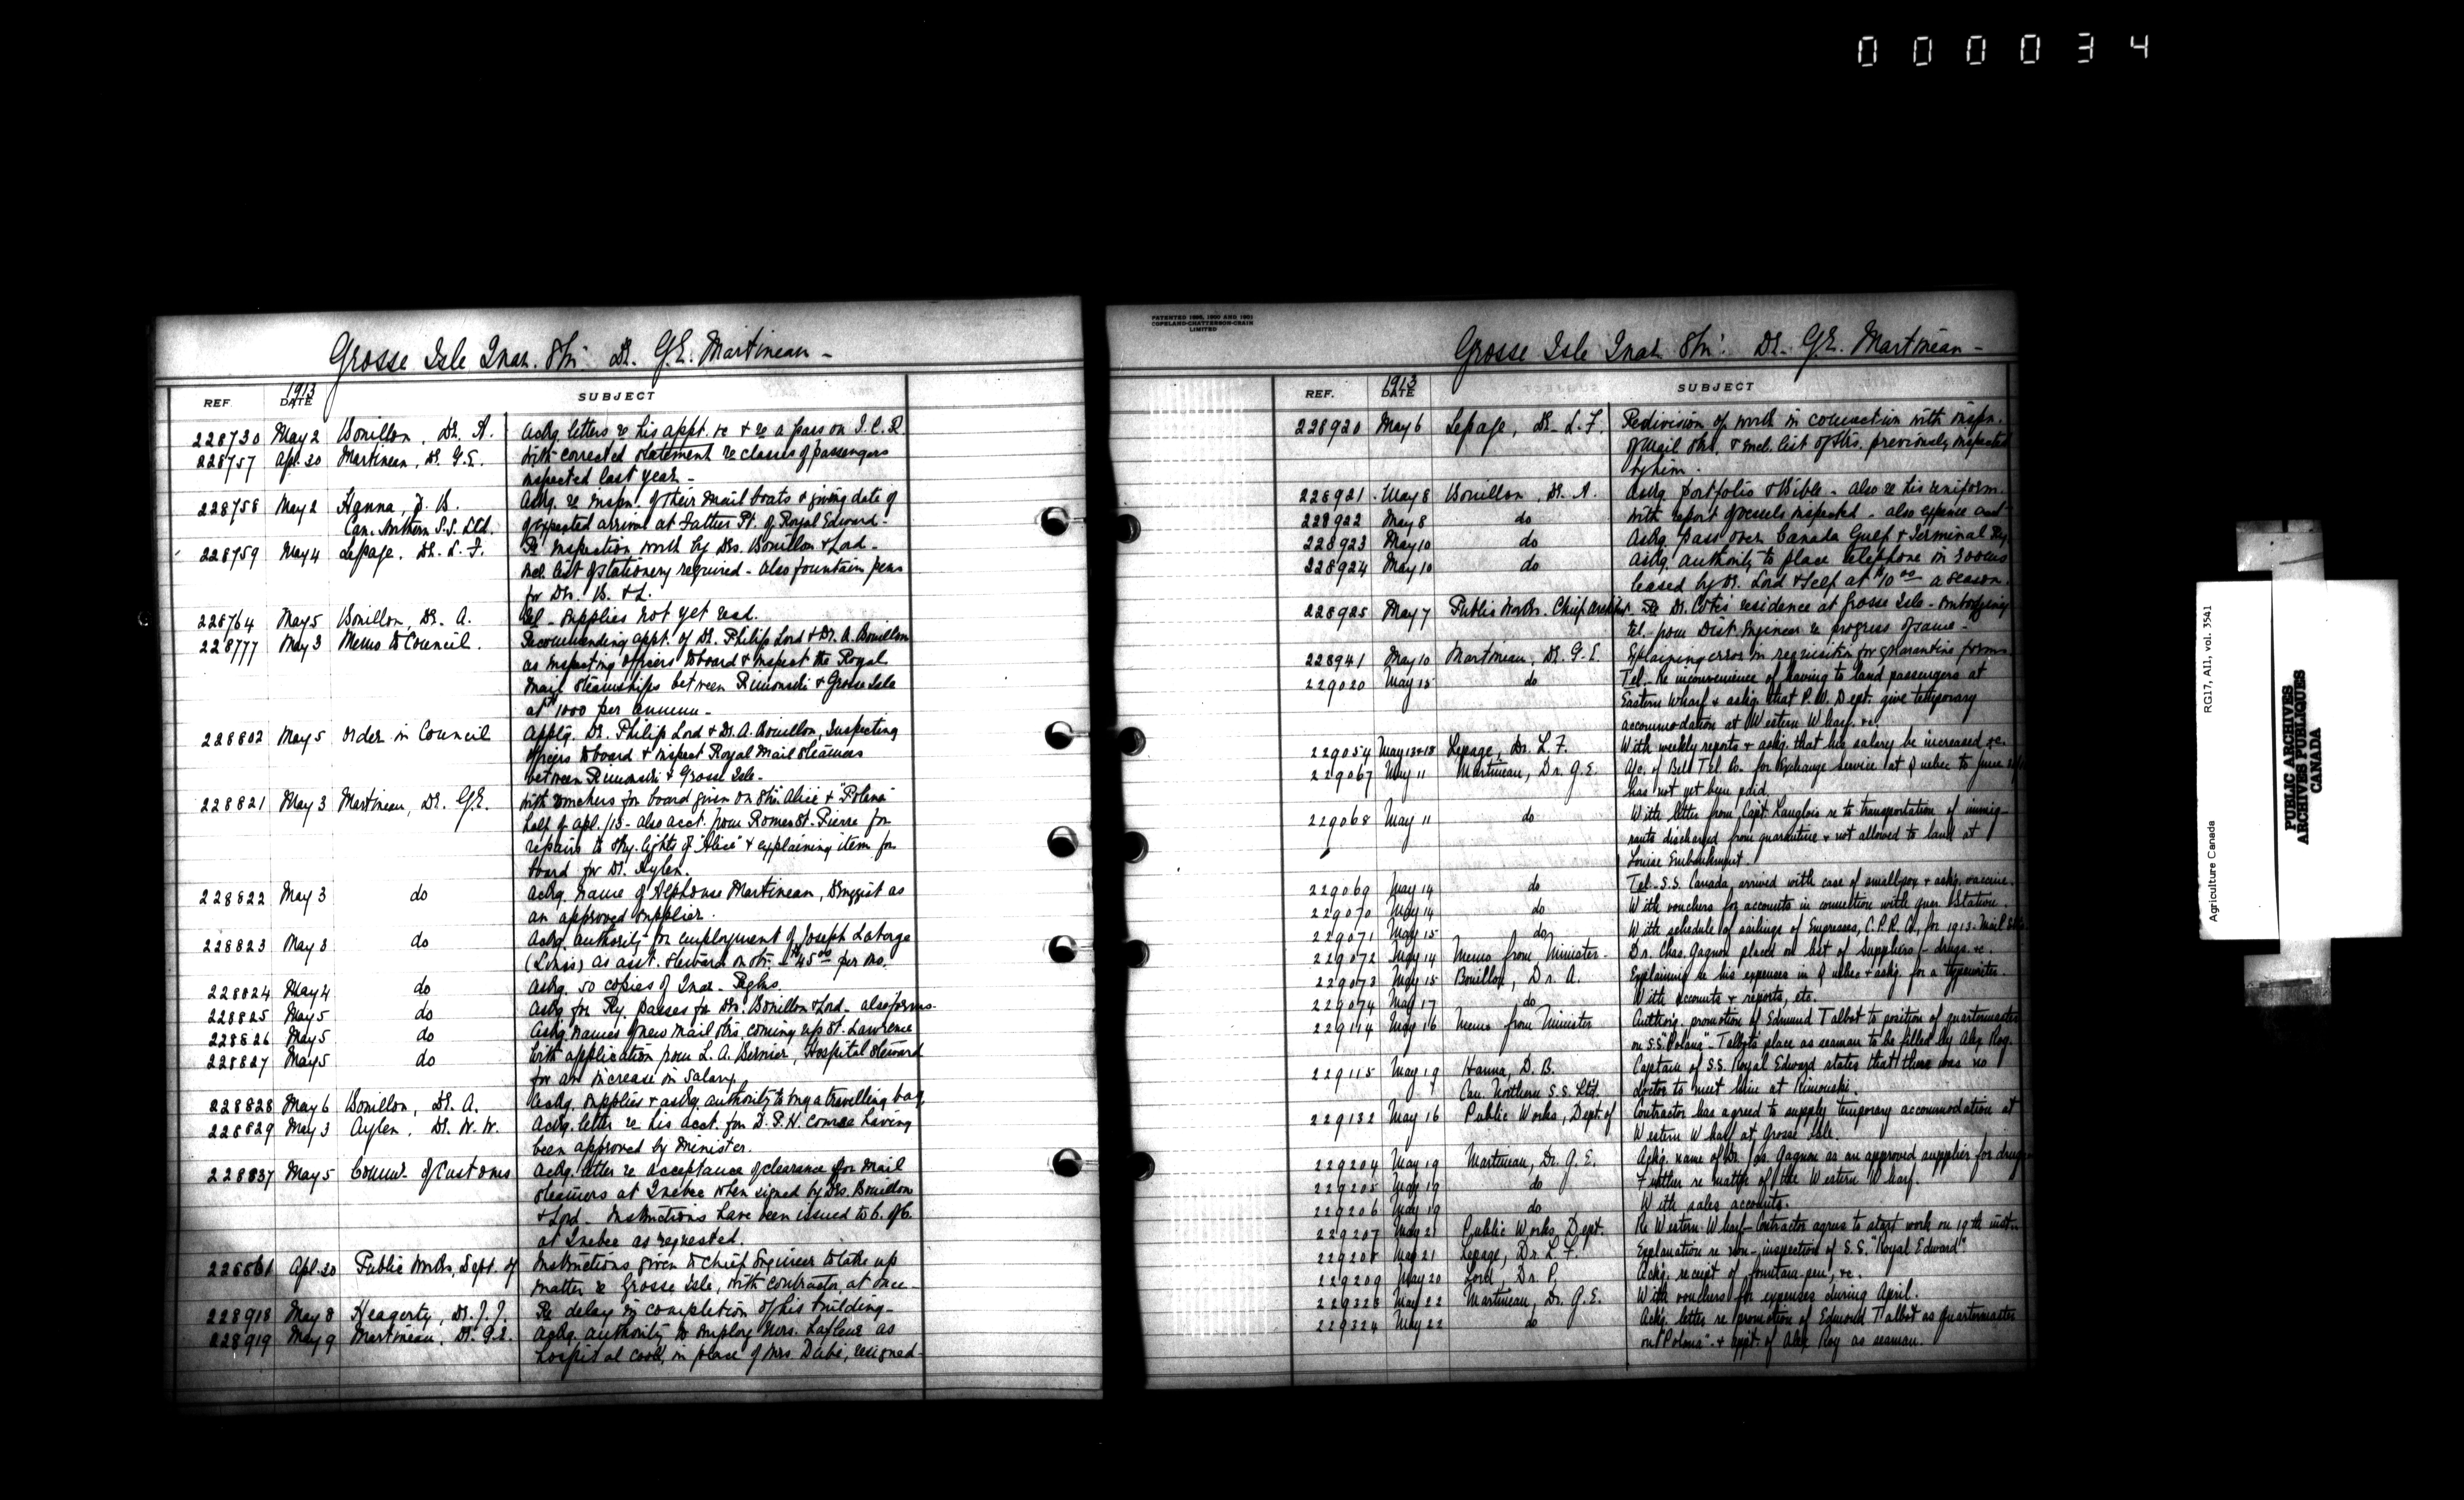 000034
Grosse Isle Quar. Stn. Dr. G.E. Martineau -
REF. 1913 DATE SUBJECT
228730 May 2 Bouillon, Dr. A. Ackg. letters re his appt. &c + re a pass on I.C.R.
228757 Apl. 30 Martineau, Dr. G.E. With corrected statement re classes of passengers
inspected last year -
228758 May 2 Hanna, D. B. Ackg. re inspn. of their mail boats & giving date of
Can. Northern S.S. Ltd. of expected arrival at Father Pt. of Royal Edward -
228759 May 4 Lepage, Dr. L. F. Re inspection work by Drs. Bouillon & Lord -
incl. list of stationery required - also fountain pens
for Drs. B. & L.
228764 May 5 Bouillon, Dr. A. Tel - supplies not yet recd.
228777 May 3 Memo to Council. Recommending appt. of Dr. Philip Lord & Dr. A. Bouillon
as inspecting officers to board & inspect the Royal
Mail Steamships between Rimouski & Grosse Isle
at $1000 per annum -
228802 May 5 Order in Council Apptg. Dr. Philip Lord & Dr. A. Bouillon, Inspecting
officers to board & inspect Royal Mail Steamers
between Rimouski & Grosse Isle -
228821 May 3 Martineau, Dr. G.E. With vouchers for board given on Str. "Alice" & "Polana"
half of Apl. /13 - also acct. from Romeo St. Pierre for
repairs to sky-lights of "Alice" & explaining item for
board for Dr. Aylen.
228822 May 3 do Ackg. name of Alphonse Martineau, Druggist as
an approved supplier.
228823 May 3 do Askg. authority for employment of Joseph Laberge
(Louis) as asst. steward on str. $45.00 per mo.
228824 May 4 do Askg. 50 copies of Quar. Regltns.
228825 May 5 do Askg for Ry. passes for Drs. Bouillon & Lord - also forms -
228826 May 5 do Askg names of new mail strs. coming up St. Lawrence
228827 May 5 do With application from L. A. Bernier, Hospital Steward
for an increase in salary.
228828 May 6 Bouillon, Dr. A. Ackg. supplies & askg. authority to buy a travelling bag.
228829 May 3 Aylen, Dr. W. W. Ackg. letter re his acct. for D.P.H. course having
been approved by Minister.
228837 May 5 Commr. of Customs Ackg. letter re acceptance of clearance for mail
steamers at Quebec when signed by Drs. Bouillon
& Lord - Instructions have been issued to C. of C.
at Quebec as requested.
228861 Apl. 30 Public Works, Dept. of Instructions given to Chief Engineer to take up
matter re Grosse Isle, with contractor, at once -
228918 May 8 Heagerty, Dr. J. J. Re delay in completion of his building -
228919 May 9 Martineau, Dr. G.E. Askg. authority to employ Mrs. Lafleur as
hospital cook, in place of Mrs. Dubé, resigned -
PATENTED 1895, 1900 AND 1901
COPELAND-CHATTERSON-CRAIN
LIMITED
Grosse Isle Quar. Stn. Dr. G.E. Martineau -
REF. 1913 DATE SUBJECT
228920 May 6 Lepage, Dr. L. F. Re division of work in connection with inspn.
of mail strs. & incl. list of strs. previously inspected
by him.
228921 May 8 Bouillon, Dr. A. Ackg. portfolio & Bible - also re his uniform.
228922 May 8 do With report of vessels inspected - also expense acct.
228923 May 10 do Askg. pass over Canada Gulf & Terminal Ry
228924 May 10 do Askg. authority to place telephone in rooms
leased by Dr. Lord & self at $10.00 a season.
228925 May 7 Public Works. Chief Architect Re Dr. Coté's residence at Grosse Isle - embodying
tel. from Dist. Engineer re progress of same -
228941 May 10 Martineau, Dr. G. E. Explaining error in requisition for quarantine forms
229020 May 15 do Tel. Re inconvenience of having to land passengers at
Eastern Wharf & askg. that P. W. Dept. give temporary
accommodation at Western Wharf. &c.
229054 May 13 & 18 Lepage, Dr. L. F. With weekly reports & askg. that his salary be increased &c.
229067 May 11 Martineau, Dr. G. E. A/c. of Bell Tel. Co. for Exchange service at Quebec to June
has not yet been paid.
229068 May 11 do With letter from Capt. Langlois re to transportation of immig-
rants discharged from quarantine & not allowed to land at
Louise Embankment.
229069 May 14 do Tel. S.S. Canada, arrived with case of smallpox & askg. vaccine.
229070 May 14 do With vouchers for accounts in connection with quar. Station.
229071 May 15 do With schedule of sailings of Empresses, C.P.R. A. for 1913. Mail
229072 May 14 Memo from Minister. Dr. Chas. Gagnon placed on list of suppliers - drugs. &c.
229073 May 15 Bouillon, Dr. A. Explaining re his expenses in Quebec & askg. for a typewriter.
229074 May 17 do With accounts & reports, etc.
229114 May 16 Memo from Minister Authorig. promotion of Edmund Talbot to position of quartermaster
on S.S. "Polana" - Talbot's place as seaman to be filled by Alex Roy.
229115 May 19 Hanna, D. B. Captain of S.S. Royal Edward states that there was no
Can. Northern S.S. Ltd. doctor to meet him at Rimouski.
229132 May 16 Public Works, Dept. of Contractor has agreed to supply temporary accommodation at
Western Wharf at Grosse Isle.
229204 May 19 Martineau, Dr. G. E. Ackg. name of Dr. Gagnon as an approved supplier for drugs
229205 May 19 do Further re matter of the Western Wharf.
229206 May 19 do With sales accounts.
229207 May 21 Public Works, Dept. Re Western Wharf - Contractor agrees to start work on 19th inst.
229208 May 21 Lepage, Dr. L. F. Explanation re non-inspection of S.S. "Royal Edward".
229209 May 20 Lord, Dr. P. Ackg. receipt of fountain-pen, &c.
229323 May 22 Martineau, Dr. G. E. With vouchers for expenses during April.
229324 May 22 do Ackg. letter re promotion of Edmond Talbot as quartermaster
on "Polana" & appt. of Alex Roy as seaman.
Agriculture Canada RG17, A11, vol. 3541
PUBLIC ARCHIVES
ARCHIVES PUBLIQUES
CANADA